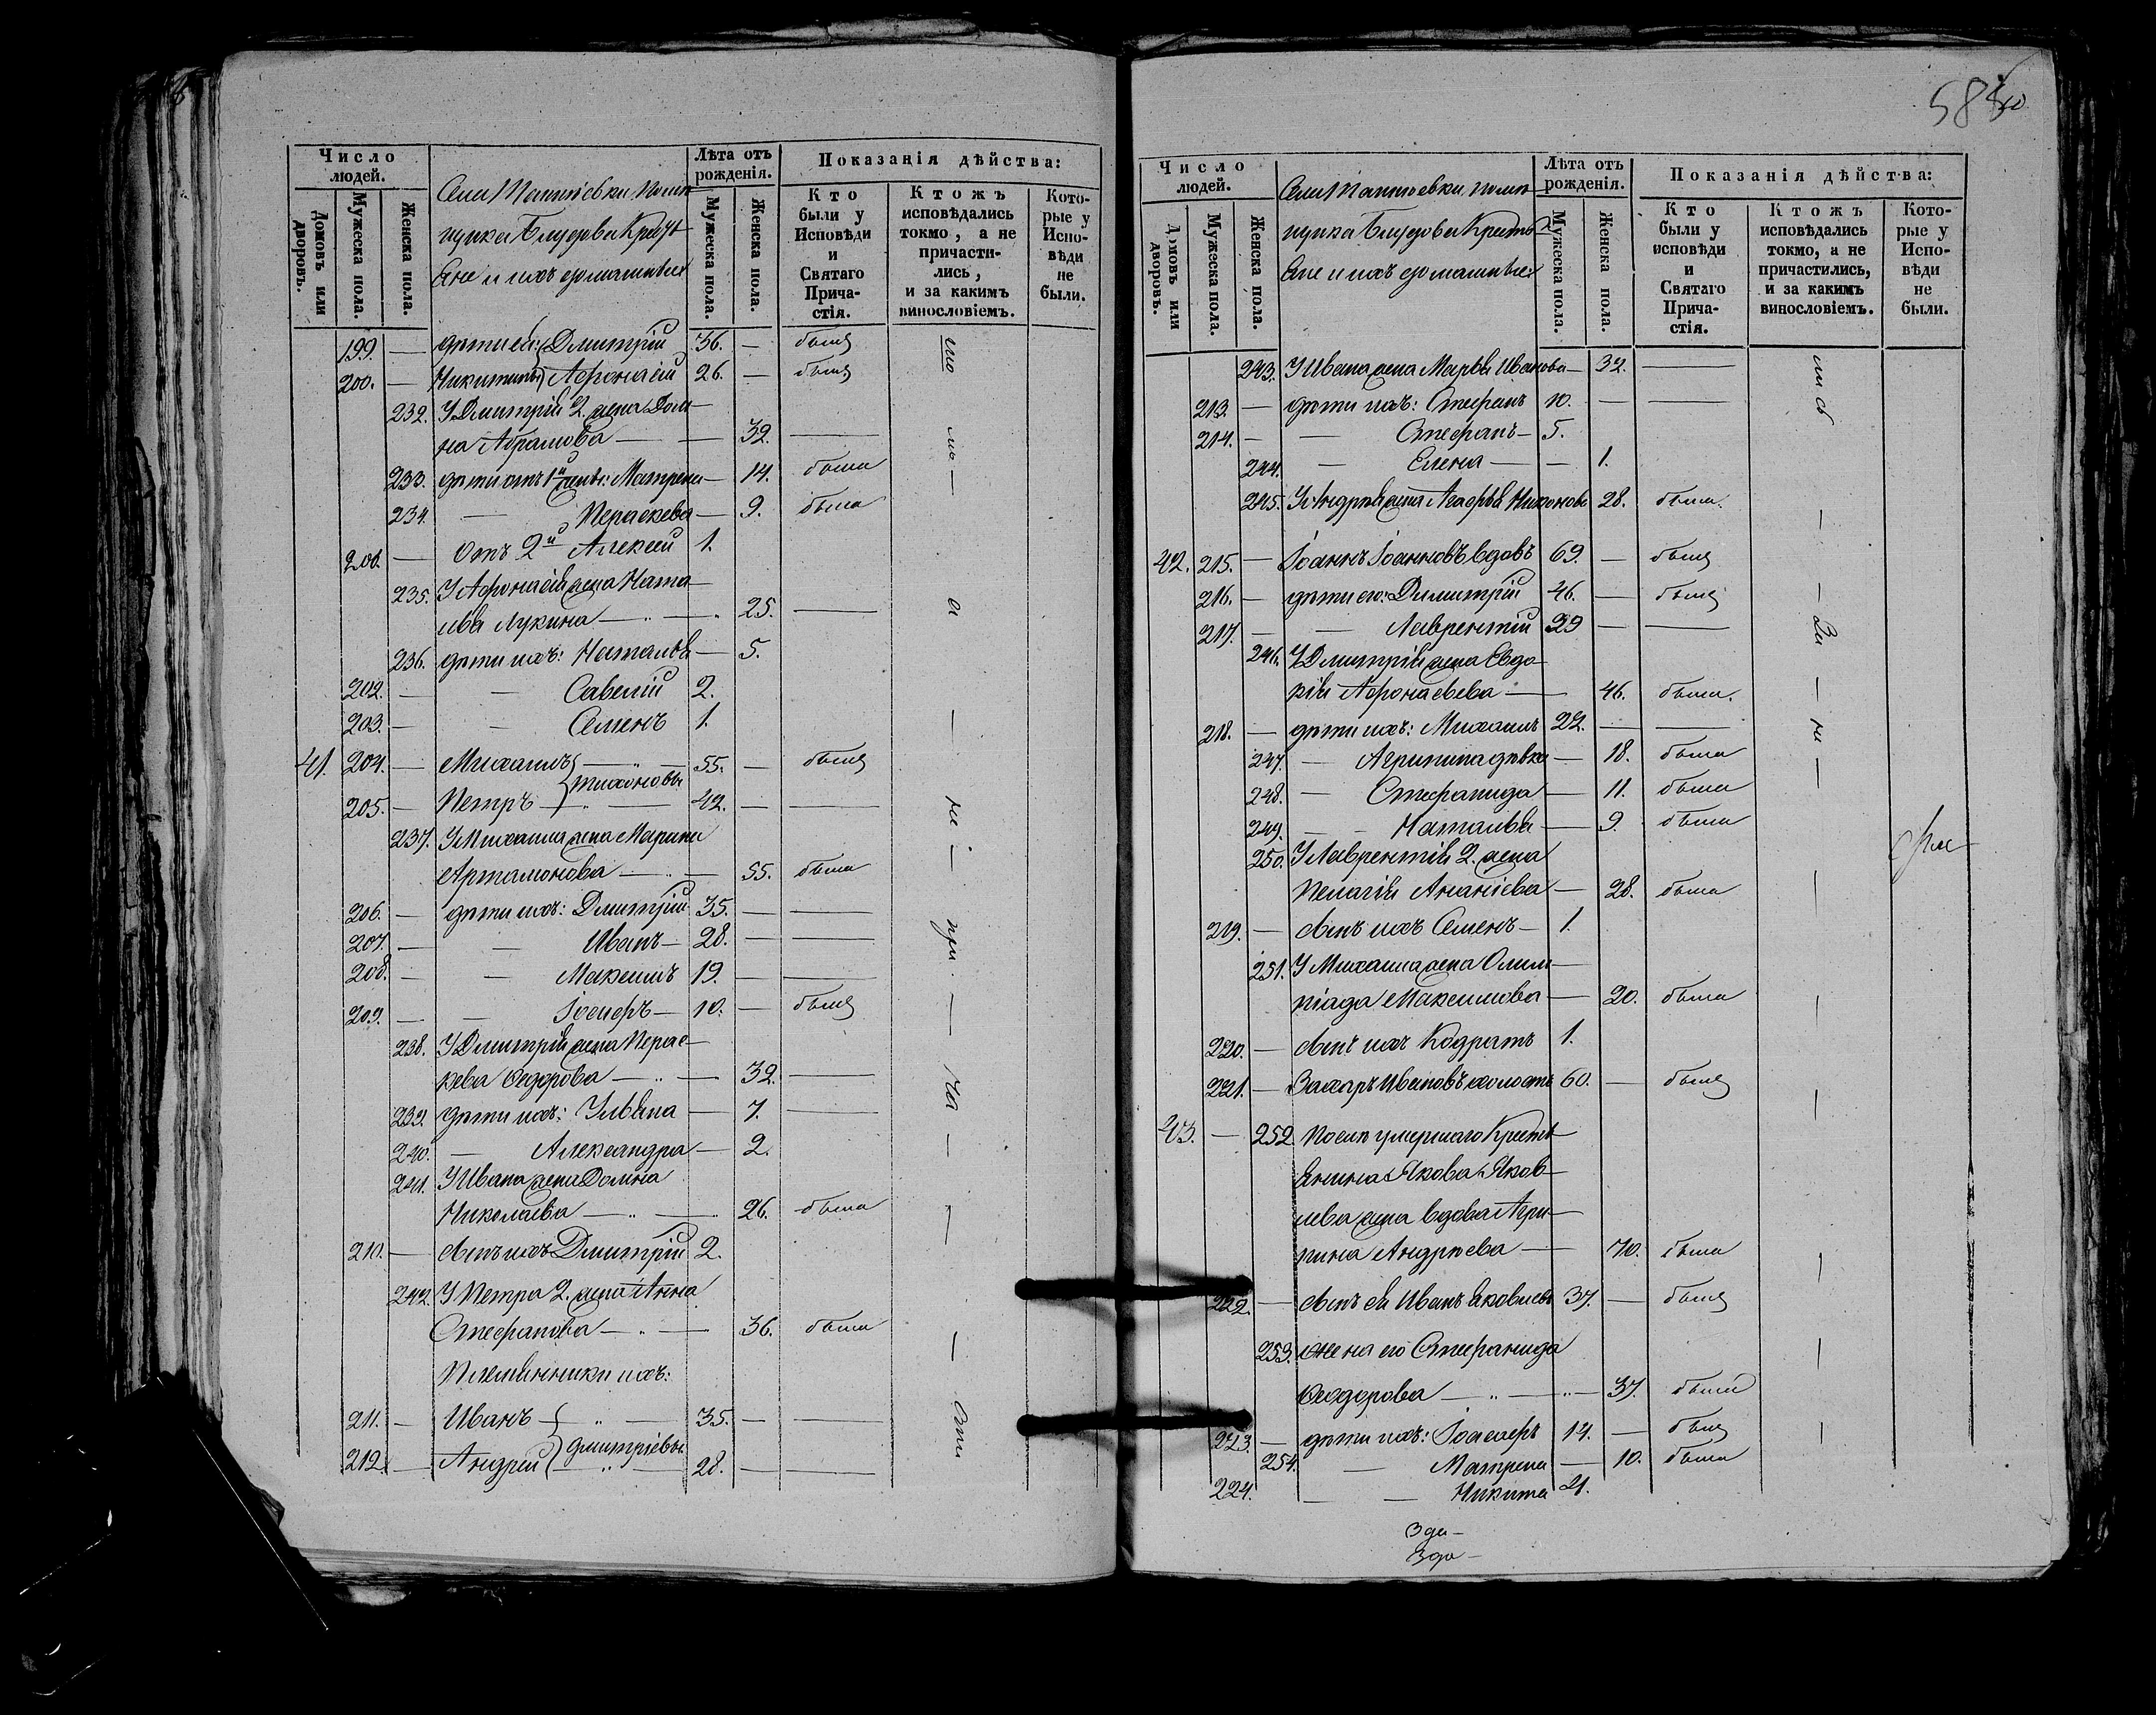 Число людей.
Домовъ или дворовъ.
Мужеска пола.
Женска пола.
Села
Блудова Кресть
яне и ихъ домашніе
Лѣта отъ рожденія.
Мужеска пола.
Женска пола.
Показанія дѣйства:
Кто были у Исповѣди и Святаго Прича-стія.
Ктожъ исповѣдались токмо, а не причасти-лись, и за какимъ винословіемъ.
Кото-рые у Испо-вѣди не были.
199. — дѣти ея: Дмитрій 36. — былъ
200. — Никитины Афонасій 26. — былъ
232. У Дмитрія 2. жена Дом-
на Абрамова — — 32. —
233. дѣти отъ 1й жены: Матрена — 14. была
234. — Пераскева — 9. была
201. — Отъ 2й Алексей 1.
235. У Афонасія жена Ната-
лья Лукина — 25. —
236. дѣти ихъ: Наталья — 5.
202. — — Савелій 2.
203. — — Семенъ 1.
41. 204. — Михаилъ — 55. — былъ
Тихоновы
205. — Петръ — 42. — —
237. У Михаила жена Марина
Артамонова — 55. была
206. — дѣти ихъ: Дмитрій 35. — —
207. — — Иванъ — 28. — —
208. — — Максимъ 19. — —
209. — — Іосифъ — 10. — былъ
238. У Дмитрія жена Перас-
кева Федорова — 32. —
239. дѣти ихъ: Ульяна — 7. —
240. — Александра — 2.
241. У Ивана жена Домна
Николаева — 26. была
210. — Сынъ ихъ Дмитрій 2.
242. У Петра 2. жена Анна
Стефанова — 36. была
Племянники ихъ:
211. — Иванъ — 35. — —
Дмитріевы
212. — Андрей — 28. — —
Число людей.
Домовъ или дворовъ.
Мужеска пола.
Женска пола.
Села
Блудова Кресть
яне и ихъ домашніе
Лѣта отъ рожденія.
Мужеска пола.
Женска пола.
Показанія дѣйства:
Кто были у исповѣди и Святаго Прича-стія.
Ктожъ исповѣдались токмо, а не причастились, и за какимъ винословіемъ.
Кото-рые у Испо-вѣди не были.
243. У Ивана жена Марья Иванова — 32. —
213. — дѣти ихъ: Стефанъ 10. — —
214. — — Стефанъ — 5.
244. — Елена — — 1.
245. У Андрея жена Агафья Никонова 28. была.
42. 215. — Іоаннъ Іоанновъ вдовъ 69. — былъ
216. — дѣти его: Димитрій 46. — былъ
217. — — Лаврентій 29 — —
246. У Дмитрія жена Евдо-
кія Афонасьева — 46. была.
218. — дѣти ихъ: Михаилъ 22. — —
247. — Агрипина дѣвка — 18. была
248. — Стефанида — 11. была
249. — — Наталья — 9. была
250. У Лаврентія 2. жена
Пелагія Ананіева — 28. была
219. — Сынъ ихъ Семенъ — 1.
251. У Михаила жена Олим-
піада Максимова — 20. была
220. — Сынъ ихъ Кодратъ 1.
221. — Захаръ Ивановъ холостъ 60. — былъ
43. — 252. Послѣ умершаго Кресть-
янина Якова Яков-
лева жена вдова Агри-
пина Андрѣева — 70. была
222. — Сынъ ея Иванъ Яковлевъ 37. — былъ
253. жена его Стефанида
Феодорова — 37. была
223. — дѣти ихъ: Іосифъ 14. — былъ
254. — Матрена — 10. была
224. — — Никита